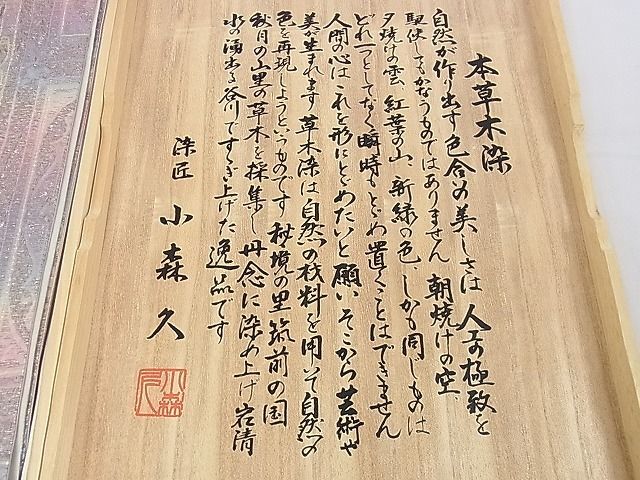 本草木染
自然が作り出す色合の美しさは人工の極致を
駆使してもかなうものではありません 朝焼けの空、
夕焼けの雲、紅葉の山、新緑の色、しかも同じものは
どれ一つとしてなく瞬時もとどめ置くことはできません
人間の心はこれを形にとどめたいと願いそこから芸術や
美が生まれます 草木染は自然の材料を用いて自然の
色を再現しようというものです 秘境の里筑前の国
秋月の山里の草木を採集し丹念に染め上げ岩清
水の湧出る谷川ですすぎ上げた逸品です
染匠 小森久
小森久